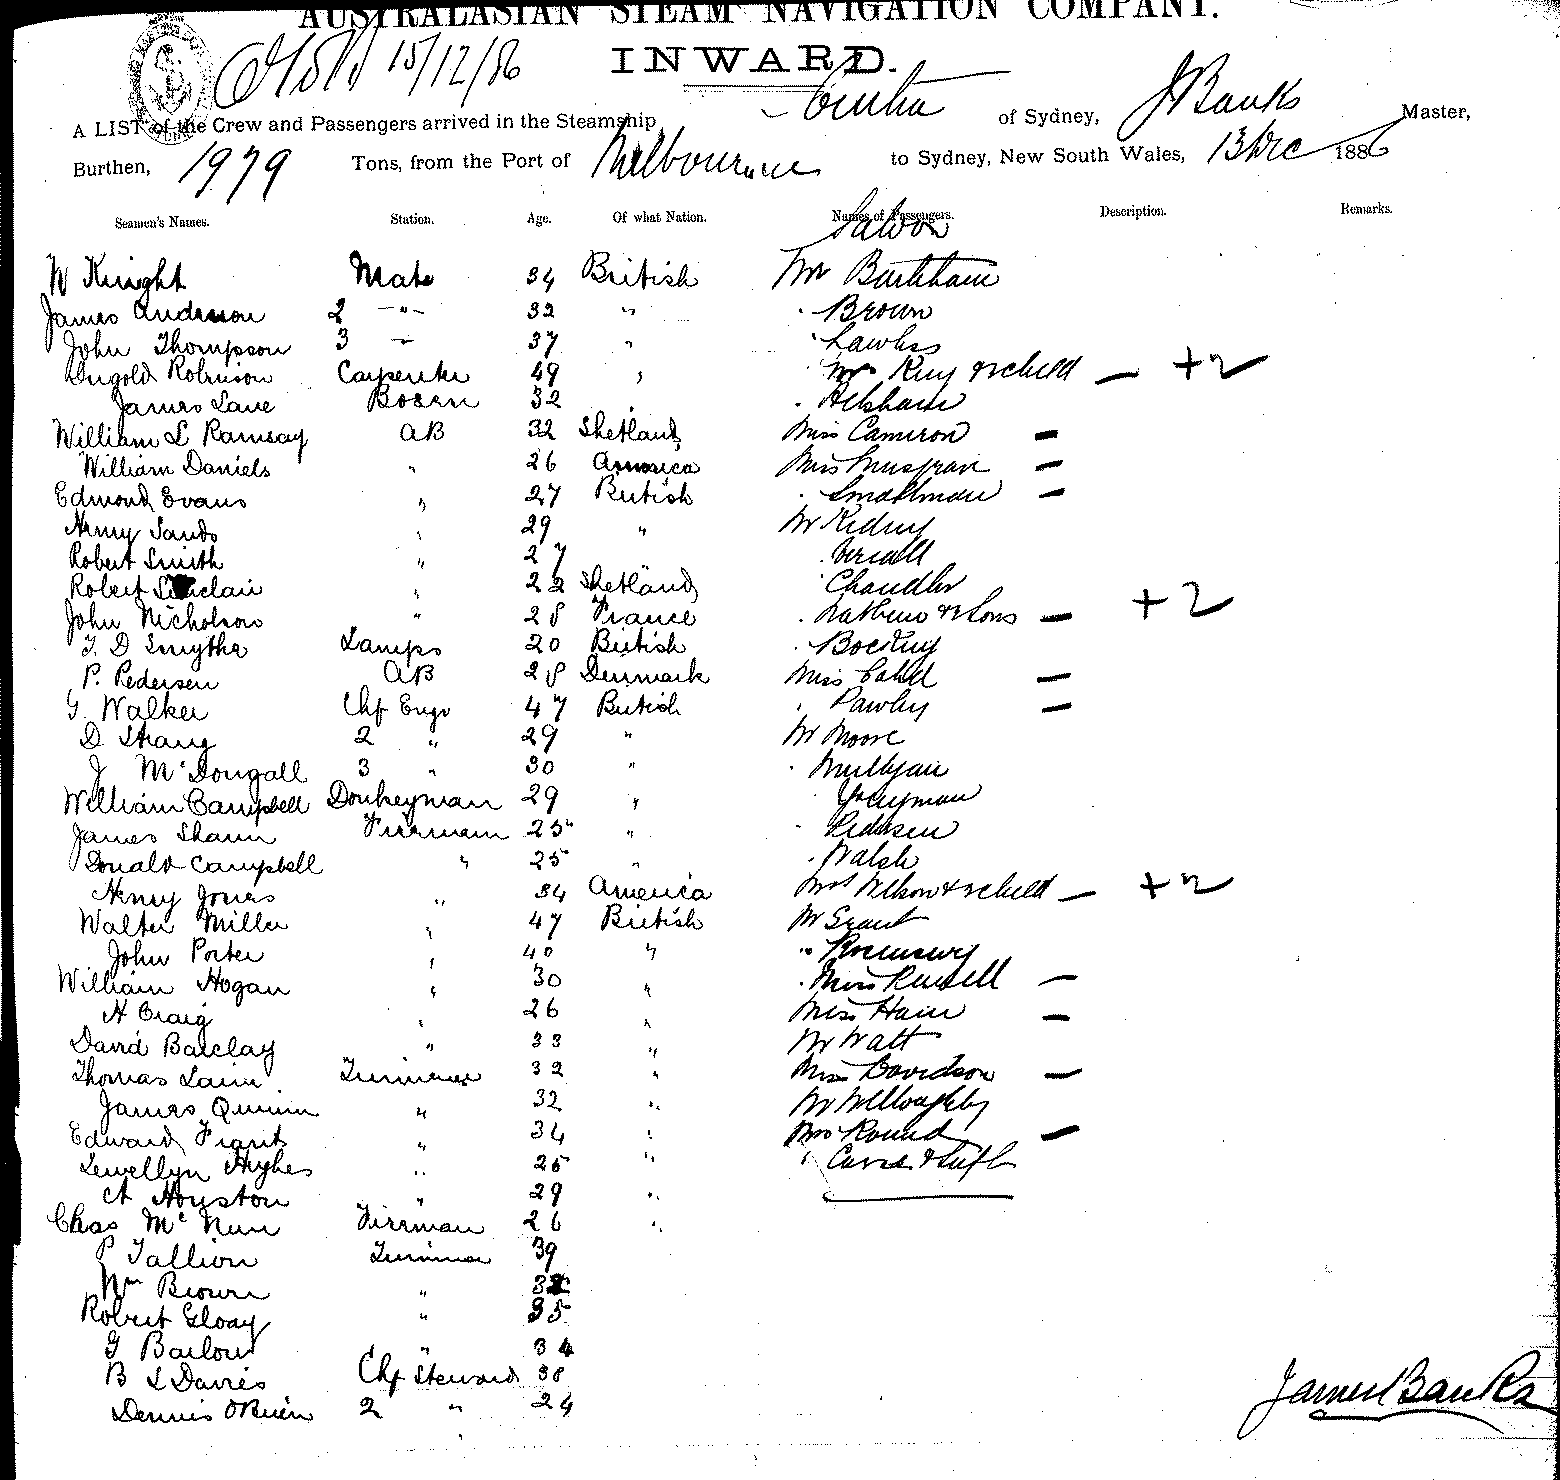 AUSTRALASIAN STEAM NAVIGATION COMPANY.
15/12/86
INWARD.
A LIST of the Crew and Passengers arrived in the Steamship of Sydney, J Banks Master,
Burthen, 1979 Tons, from the Port of Melbourne to Sydney, New South Wales, 13 Dec 1886
Seamen's Names. Station. Age. Of what Nation. Names of Passengers. Description. Remarks.
Saloon
W Knight Mate 34 British Mr Burkham
James Anderson 2 -"- 32 " . Brown
John Thompson 3 - 37 " . Lawless
Dugold Robinson Carpenter 49 " Mrs King & child — +2
James Lane Bosen 32 . Helsham
William L Ramsay AB 32 Shetland Miss Cameron —
William Daniels " 26 America Mrs Musgrave —
Edmond Evans " 27 British . Smallman —
Henry Sands " 29 " Mr
Robert Smith " 27
Robert Sinclair " 22 Shetland . Chandler
John Nicholson " 28 France & Sons — +2
T. D Smythe Lamps 20 British
P. Pedersen AB 28 Denmark Miss —
G. Walker Chf Engr 47 British . Pawley —
D Strang 2 " 29 " Mr Moore
J McDougall 3 " 30 "
William Campbell Donkeyman 29 "
James Shann Fireman 25 " . Pedersen
Donald Campbell " 25 " . Walsh
Henry Jones " 34 America Mrs Nelson & child — +2
Walter Miller " 47 British Mr Grant
John Porter " 40 "
William Hogan " 30 " . Miss Russell —
H Craig " 26 " Miss Hain —
David Barclay " 33 " Mr Watt
Thomas Trimmer 32 " Miss Davidson —
James Quinn " 32 " Mr Willoughby
Edward " 34 " Mrs Round —
Lewellyn Hughes " 25 "
A Houston " 29 "
Chas Mc Nun Fireman 26 "
P Tallion Trimmer 39
Wm Brown "
Robert Gloay " 35
G Barlow " 34
B L Davies Chf Steward 38
Dennis O'Brien 2 " 24
James Banks